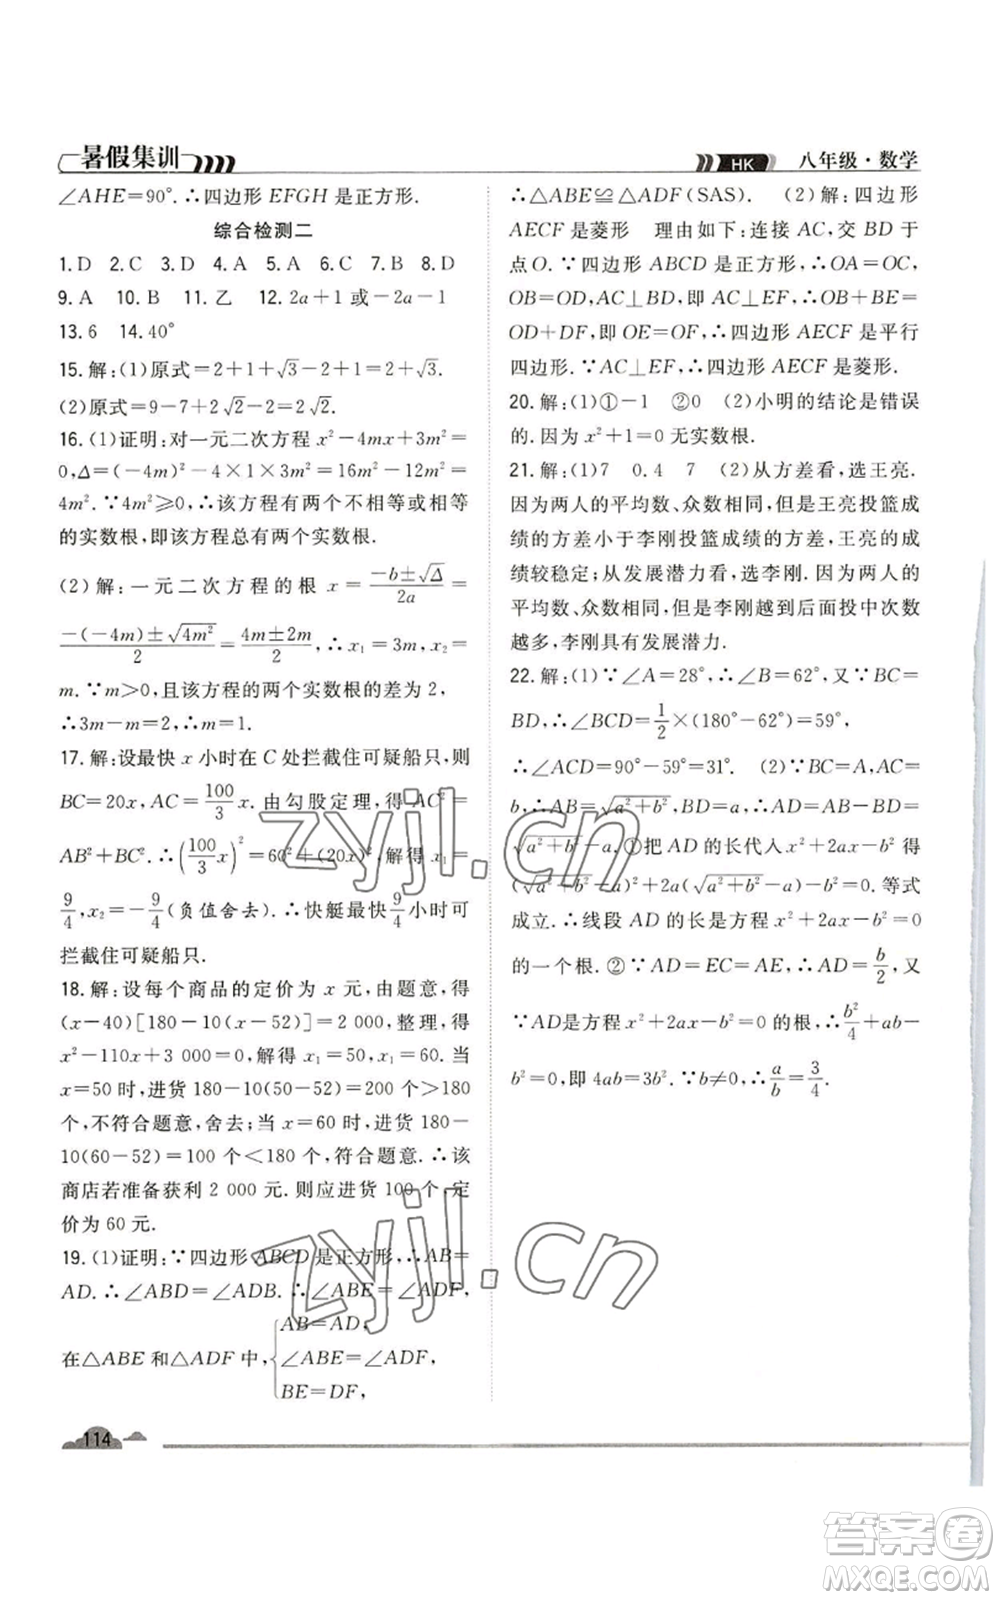 暑假集训
HK 八年级·数学
∠AHE=90°.∴四边形 EFGH 是正方形.
综合检测二
1.D 2.C 3.D 4.A 5.A 6.C 7.B 8.D
9.A 10.B 11.乙 12.2a+1或-2a-1
13.6 14.40°
15.解:(1)原式=2+1+√3-2=1+√3.
(2)原式=9-7+2√2-2=2√2.
16.(1)证明:对一元二次方程 x²-4mx+3m²=
0,Δ=(-4m)²-4×1×3m²=16m²-12m²=
4m².∵4m²≥0,∴该方程有两个不相等或相等
的实数根,即该方程总有两个实数根.
(2)解:一元二次方程的根 x=(-b±√Δ)/2a=
(-(-4m)±√4m²)/2=(4m±2m)/2,∴x₁=3m,x₂=
m.∵m>0,且该方程的两个实数根的差为 2,
∴3m-m=2,∴m=1.
17.解:设最快 x 小时在 C 处拦截住可疑船只,则
BC=20x,AC=100/3 x.由勾股定理,得 AC²=
AB²+BC².∴(100/3 x)²=60²+(20x)².解得 x₁=
9/4,x₂=-9/4(负值舍去).∴快艇最快9/4小时可
拦截住可疑船只.
18.解:设每个商品的定价为 x 元,由题意,得
(x-40)[180-10(x-52)]=2 000,整理,得
x²-110x+3 000=0,解得 x₁=50,x₂=60.当
x=50时,进货 180-10(50-52)=200 个>180
个,不符合题意,舍去;当 x=60 时,进货 180-
10(60-52)=100 个<180 个,符合题意.∴该
商店若准备获利 2 000 元.则应进货 100 个,定
价为 60 元.
19.(1)证明:∵四边形 ABCD 是正方形,∴AB=
AD.∴∠ABD=∠ADB.∴∠ABE=∠ADF,
在△ABE 和△ADF 中,{AB=AD,
∠ABE=∠ADF,
BE=DF,
∴△ABE≌△ADF(SAS). (2)解:四边形
AECF是菱形 理由如下:连接 AC,交 BD 于
点O.∵四边形 ABCD 是正方形,∴OA=OC,
OB=OD,AC⊥BD,即 AC⊥EF,∴OB+BE=
OD+DF,即 OE=OF,∴四边形 AECF 是平行
四边形.∵AC⊥EF,∴四边形 AECF 是菱形.
20.解:(1)①-1 ②0 (2)小明的结论是错误
的.因为 x²+1=0 无实数根.
21.解:(1)7 0.4 7 (2)从方差看,选王亮.
因为两人的平均数、众数相同,但是王亮投篮成
绩的方差小于李刚投篮成绩的方差,王亮的成
绩较稳定;从发展潜力看,选李刚.因为两人的
平均数、众数相同,但是李刚越到后面投中次数
越多,李刚具有发展潜力.
22.解:(1)∵∠A=28°,∴∠B=62°,又∵BC=
BD,∴∠BCD=1/2×(180°-62°)=59°.
∴∠ACD=90°-59°=31°. (2)∵BC=A,AC=
b,∴AB=√(a²+b²),BD=a,∴AD=AB-BD=
√(a²+b²)-a.①把 AD 的长代入 x²+2ax-b²得
(√(a²+b²)-a)²+2a(√(a²+b²)-a)=0.等式
成立.∴线段 AD 的长是方程 x²+2ax-b²=0
的一个根.②∵AD=EC=AE,∴AD=b/2,又
∵AD是方程 x²+2ax-b²=0 的根,∴b²/4+ab-
b²=0,即 4ab=3b².∵b≠0,∴a/b=3/4.
114
zyjl.cn
zyjl.cn
答案圈
MXQE.COM